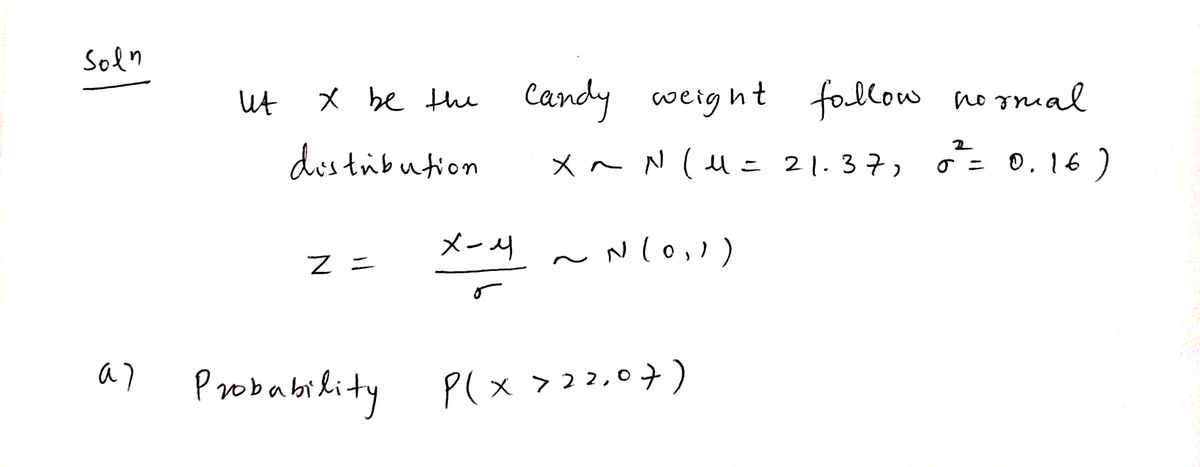 Soln
Let X be the Candy weight follow normal
distribution X ~ N ( μ = 21.37, σ² = 0.16 )
Z = (X-μ)/σ ~ N(0,1)
a) Probability P( X > 22.07 )